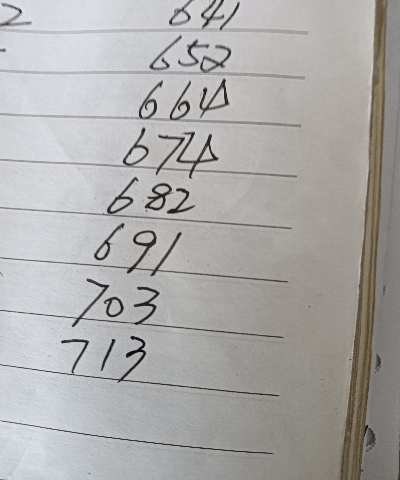 2 641
652
664
674
682
691
703
713